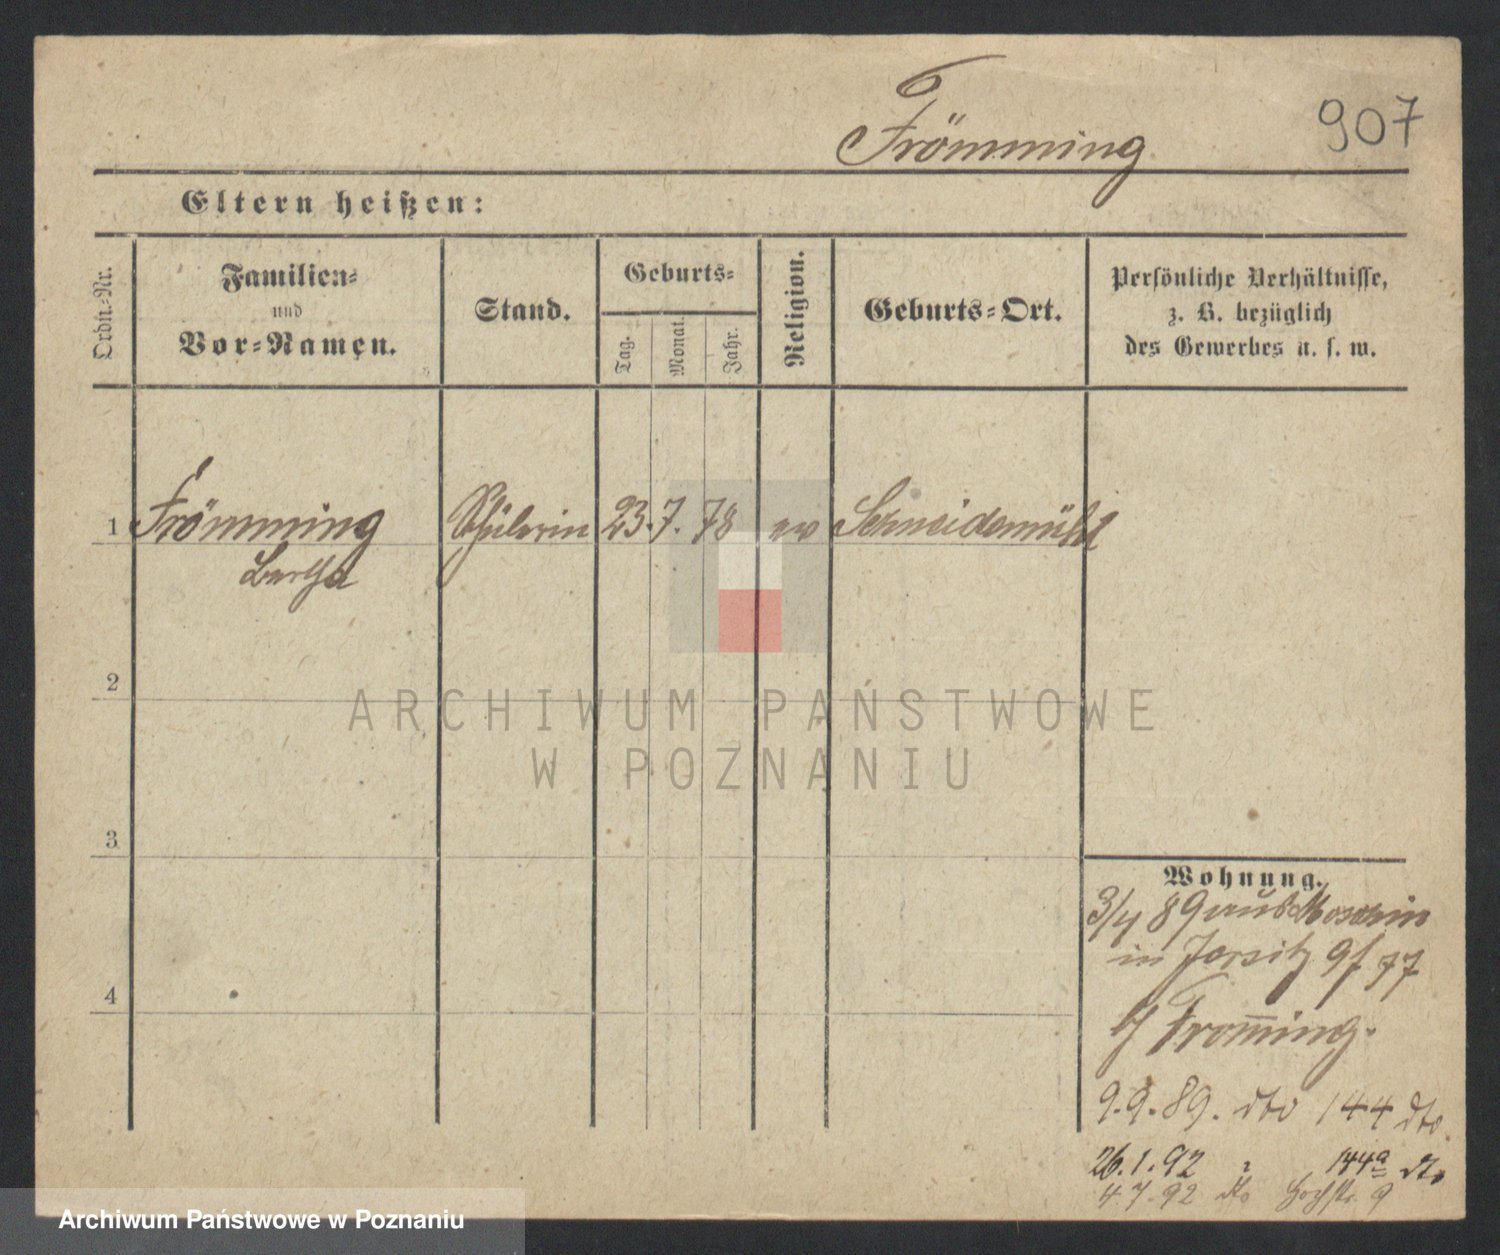 Frömming
907
Eltern heißen:
Ordn.-Nr.
Familien-
und
Vor-Namen.
Stand.
Geburts-
Tag.
Monat.
Jahr.
Religion.
Geburts-Ort.
Persönliche Verhältnisse,
z. B. bezüglich
des Gewerbes u. s. w.
1 Frömming Schülerin 23. 7. 78 ev Schneidemühl
Bertha
2
3
4
Wohnung.
3/4 89 aus
in Jersitz 97
b/ Fromming.
9.9.89. dto 144 dto
26.1.92 " 144a dto
4.7.92 dto Hochstr. 9
ARCHIWUM PAŃSTWOWE
W POZNANIU
Archiwum Państwowe w Poznaniu